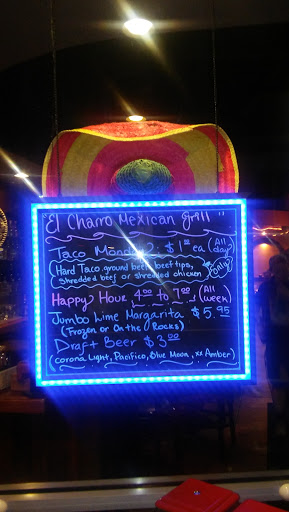 "El Charro Mexican grill"
Taco Monday : $1 ea (All day)
(Hard Taco, ground beef, beef tips, Only)
shredded beef or shredded chicken)
Happy Hour 4:00 to 7:00 (All week)
Jumbo Lime Margarita $5.95
(Frozen or On the Rocks)
Draft Beer $3.00
(corona Light, Pacifico, Blue Moon, xx Amber)